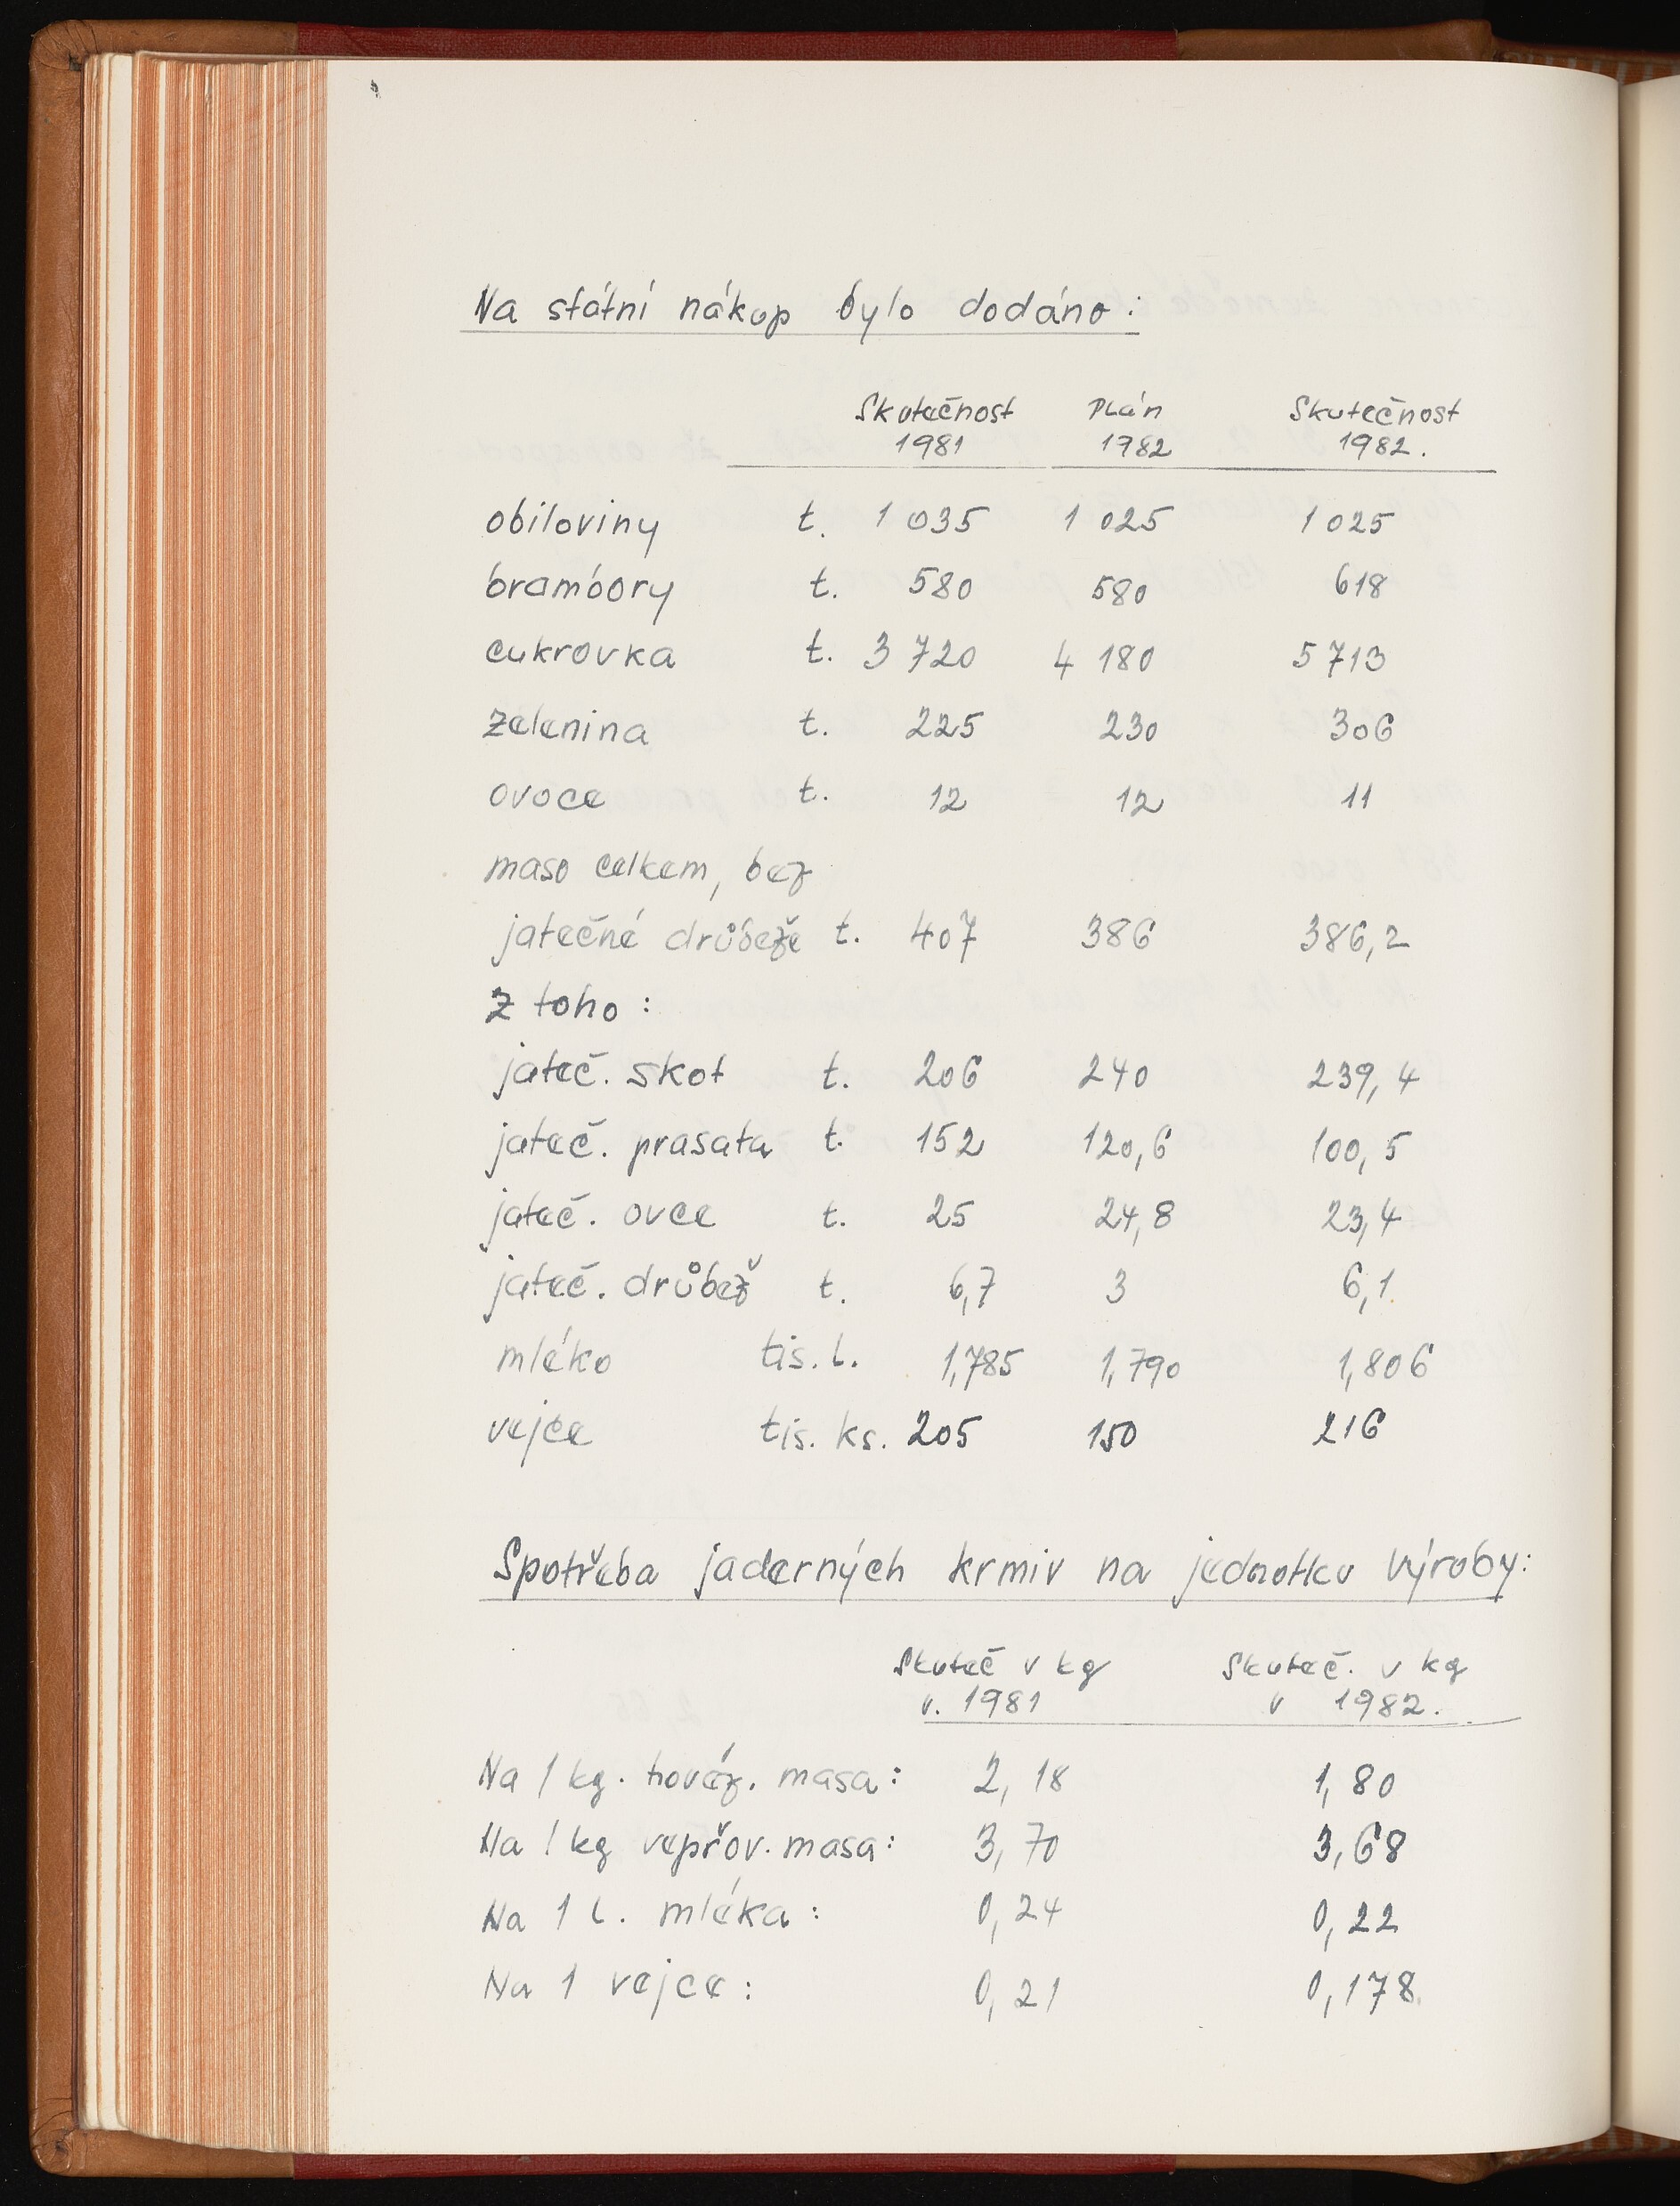 Na státní nákup bylo dodáno:
Skutečnost Plán Skutečnost
1981 1982 1982.
obiloviny t. 1 035 1 025 1 025
brambory t. 580 580 618
cukrovka t. 3 720 4 180 5 713
zelenina t. 225 230 306
ovoce t. 12 12 11
maso celkem, bez
jatečné drůbeže t. 407 386 386,2
z toho:
jateč. skot t. 206 240 239,4
jateč. prasata t. 152 120,6 100,5
jateč. ovce t. 25 24,8 23,4
jateč. drůbež t. 6,7 3 6,1
mléko tis. l. 1,785 1,790 1,806
vejce tis. ks. 205 150 216
Spotřeba jaderných krmiv na jednotku výroby:
Skuteč v kg Skuteč. v kg
v. 1981 v 1982.
Na 1 kg. hověz. masa: 2,18 1,80
Na 1 kg vepřov. masa: 3,70 3,68
Na 1 l. mléka: 0,24 0,22
Na 1 vejce: 0,21 0,178